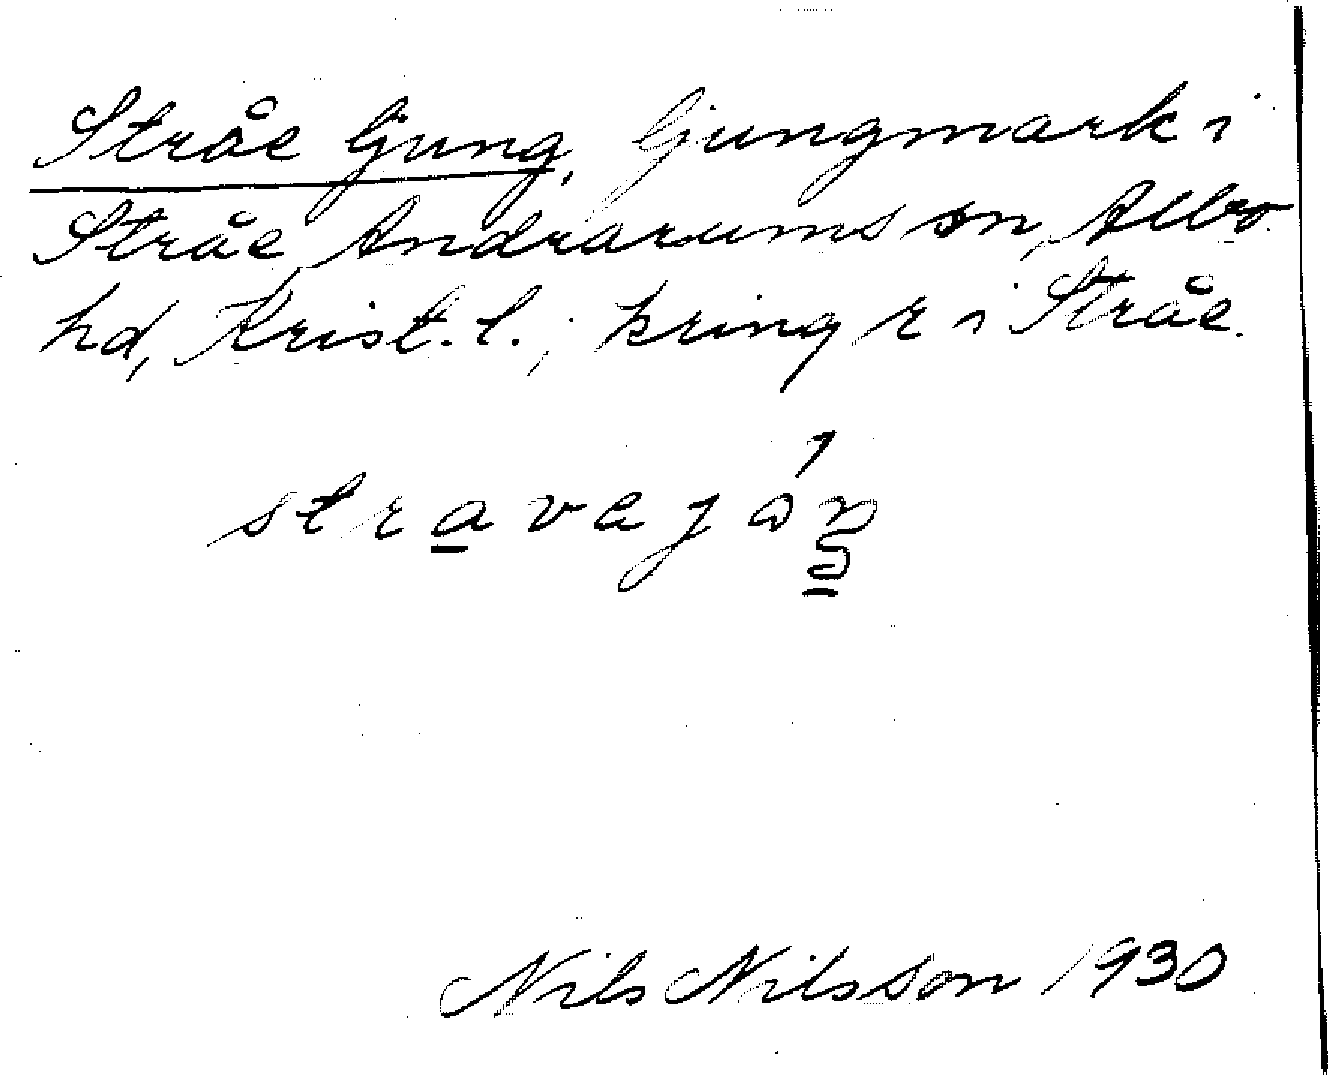 Stråe ljung, ljungmark i
Stråe, Andrarums sn, Albo
hd, Krist. l.; kring r i Stråe.
stravejåŋ
Nils Nilsson 1930